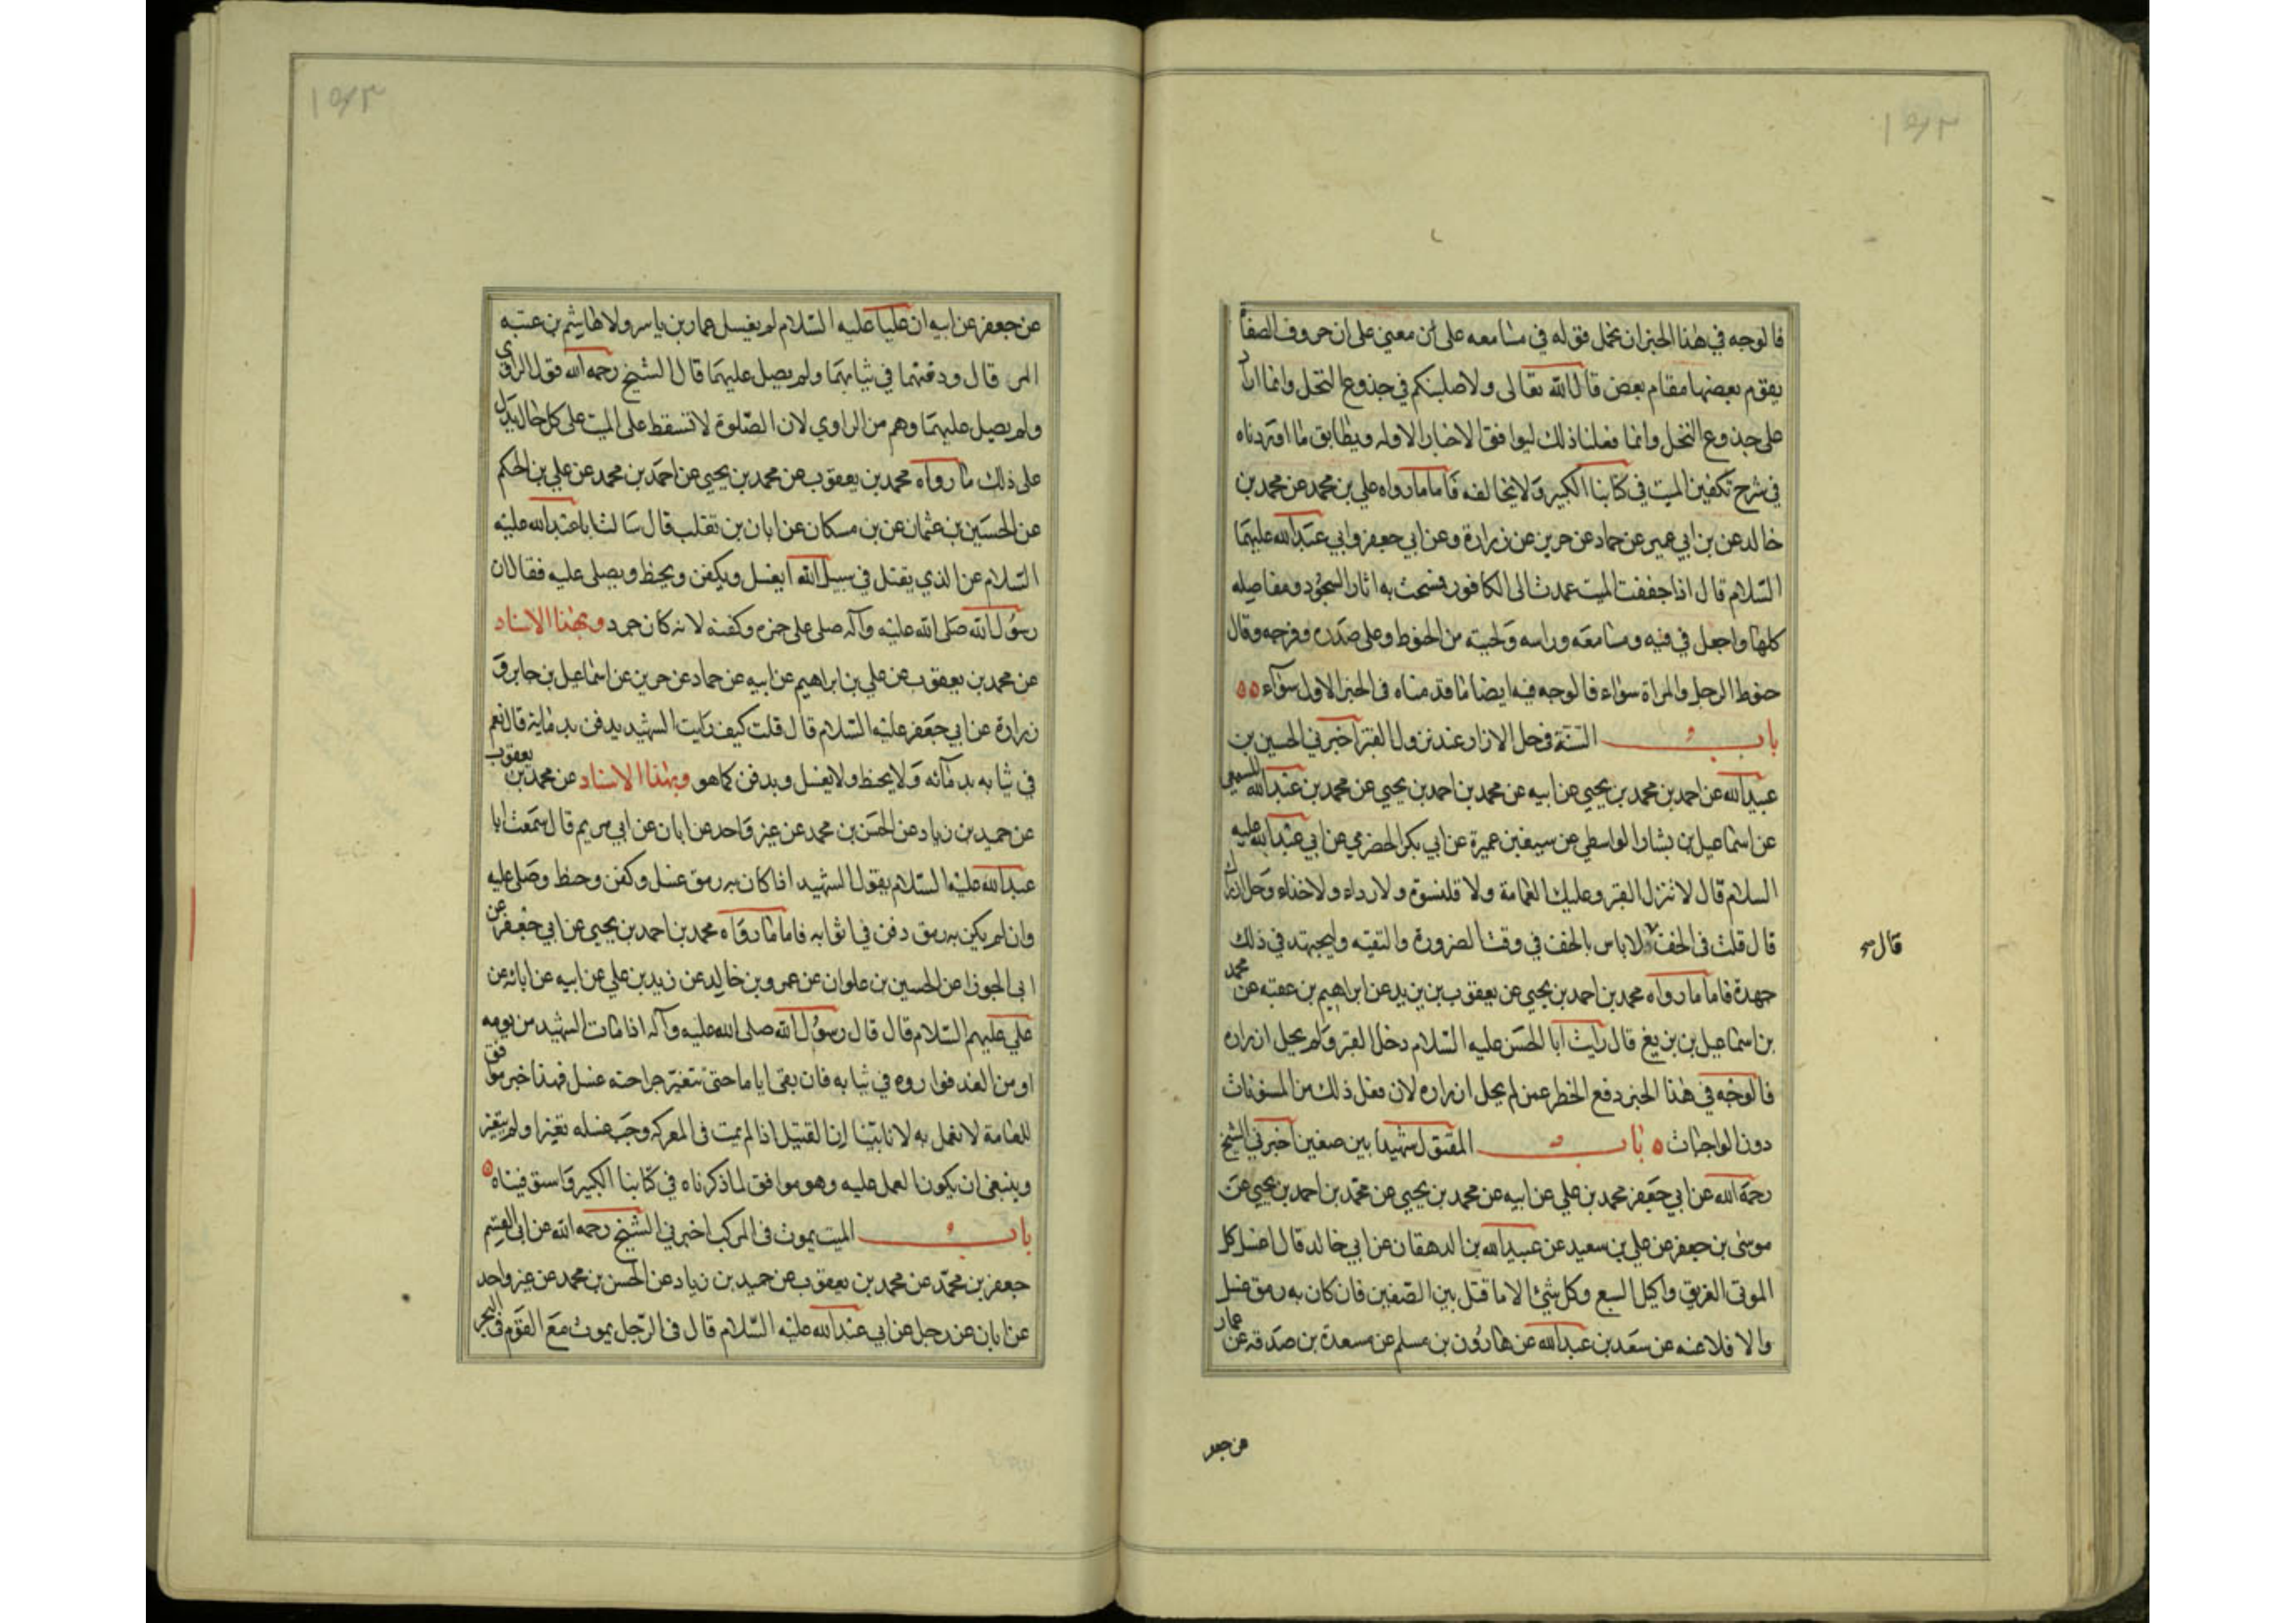 فالوجه في هذا الخبر ان نحمل قوله في مسامعه على ان معني على ان حروف الصفات
يقوم بعضها مقام بعض قال الله تعالى ولاصلبنكم في جذوع النخل وانما اراد
على جذوع النخل وانما فعلنا ذلك ليوافق الاخبار الاوله ويطابق ما اوردناه
في شرح تكفين الميت في كتابنا الكبير ولا يخالفه فاما ما رواه علي بن محمد عن محمد بن
خالد عن بن ابي عمير عن حماد عن حريز عن زرارة وعن ابي جعفر وابي عبد الله عليهما
السلام قال اذا جففت الميت عمدت الى الكافور فمسحت به اثار السجود ومفاصله
كلها واجعل في فيه ومسامعه وراسه ولحيته من الحنوط وعلى صدره وفرجه وقال
حنوط الرجل والمراة سواء فالوجه فيه ايضا ما قدمناه في الخبر الاول سواء
باب السنة في حل الازار عند نزول القبر اخبرني الحسين بن
عبيد الله عن احمد بن محمد بن يحيي عن ابيه عن محمد بن احمد بن يحيي عن محمد بن عبد الله المسمعي
عن اسماعيل بن بشار الواسطي عن سيف بن عميرة عن ابي بكر الحضرمي عن ابي عبد الله عليه
السلام قال لا تنزل القبر وعليك العمامة ولا قلنسوة ولا رداء ولا حذاء وحل ازرارك
قال قلت في الخف لا باس بالخف في وقت الضرورة والتقيه وليجتهد في ذلك
قال
جهدة فاما ما رواه محمد بن احمد بن يحيي عن يعقوب بن يزيد عن ابراهيم بن عقبه عن محمد
بن اسماعيل بن بزيغ قال رايت ابا الحسن عليه السلام دخل القبر ولم يحل ازراره
فالوجه في هذا الخبر دفع الخطر عمن لم يحل ازراره لان فعل ذلك من المسنونات
دون الواجبات باب المقتول شهيدا بين صفين اخبرني الشيخ
رحمة الله عن ابي جعفر محمد بن علي عن ابيه عن محمد بن يحيي عن محمد بن احمد بن يحيي عن
موسى بن جعفر عن علي بن سعيد عن عبيد الله بن الدهقان عن ابي خالد قال اغسل كل
الموتى الغريق واكيل السبع وكل شئ الا ما قتل بين الصفين فان كان به رمق غسل
والا فلا عنه عن سعد بن عبد الله عن هارون بن مسلم عن مسعدة بن صدقه عن عمار
عن جعفر
عن جعفر عن ابيه ان عليا عليه السلام لم يغسل عمار بن ياسر ولا هاشم بن عتبه
المر قال ودفنهما في ثيابهما ولم يصل عليهما قال الشيخ رحمه الله قول الراوي
ولم يصل عليهما وهم من الراوي لان الصلوة لا تسقط على الميت على كل حال يدل
على ذلك ما رواه محمد بن يعقوب عن محمد بن يحيي عن احمد بن محمد عن علي بن الحكم
عن الحسين بن عثمان عن بن مسكان عن ابان بن تغلب قال سالت ابا عبد الله عليه
السلام عن الذي يقتل في سبيل الله ايغسل ويكفن ويحنط ويصلى عليه فقال ان
رسول الله صلى الله عليه وآله صلى على حمزه وكفنه لانه كان جرد وبهذا الاسناد
عن محمد بن يعقوب عن علي بن ابراهيم عن ابيه عن حماد عن حريز عن اسماعيل بن جابر و
زرارة عن ابي جعفر عليه السلام قال قلت كيف رايت الشهيد يدفن بدمايه قال نعم
في ثيابه بدمآئه ولا يحنط ولا يغسل ويدفن كما هو وبهذا الاسناد عن محمد بن يعقوب
عن حميد بن زياد عن الحسن بن محمد عن غير واحد عن ابان عن ابي مريم قال سمعت ابا
عبد الله عليه السلام يقول الشهيد اذا كان به رمق غسل وكفن وحنط وصلى عليه
وان لم يكن به رمق دفن في اثوابه فاما ما رواه محمد بن احمد بن يحيي عن ابي جعفر عن
ابي الجوزا عن الحسين بن علوان عن عمرو بن خالد عن زيد بن علي عن ابيه عن ابائه عن
علي عليهم السلام قال قال رسول الله صلى الله عليه وآله اذا مات الشهيد من يومه
او من الغد فواروه في ثيابه فان بقى اياما حتى تتغير جراحته غسل فهذا خبر موافق
للعامة لا نعمل به لانا بينا ان القتيل اذا لم يمت في المعركه وجب غسله تغير او لم يتغير
وينبغى ان يكون العمل عليه وهو موافق لما ذكرناه في كتابنا الكبير واستوفيناه
باب الميت يموت في المركب اخبرني الشيخ رحمه الله عن ابي القسم
جعفر بن محمد عن محمد بن يعقوب عن حميد بن زياد عن الحسن بن محمد عن غير واحد
عن ابان عن رجل عن ابي عبد الله عليه السلام قال في الرجل يموت مع القوم في البحر